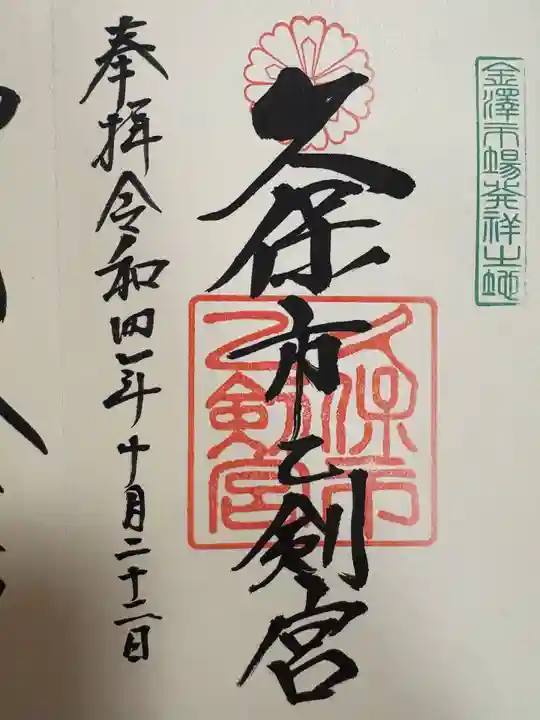 金澤市場発祥之地
久保市乙剣宮
久保市
乙剣宮
奉拝令和四年十月二十二日